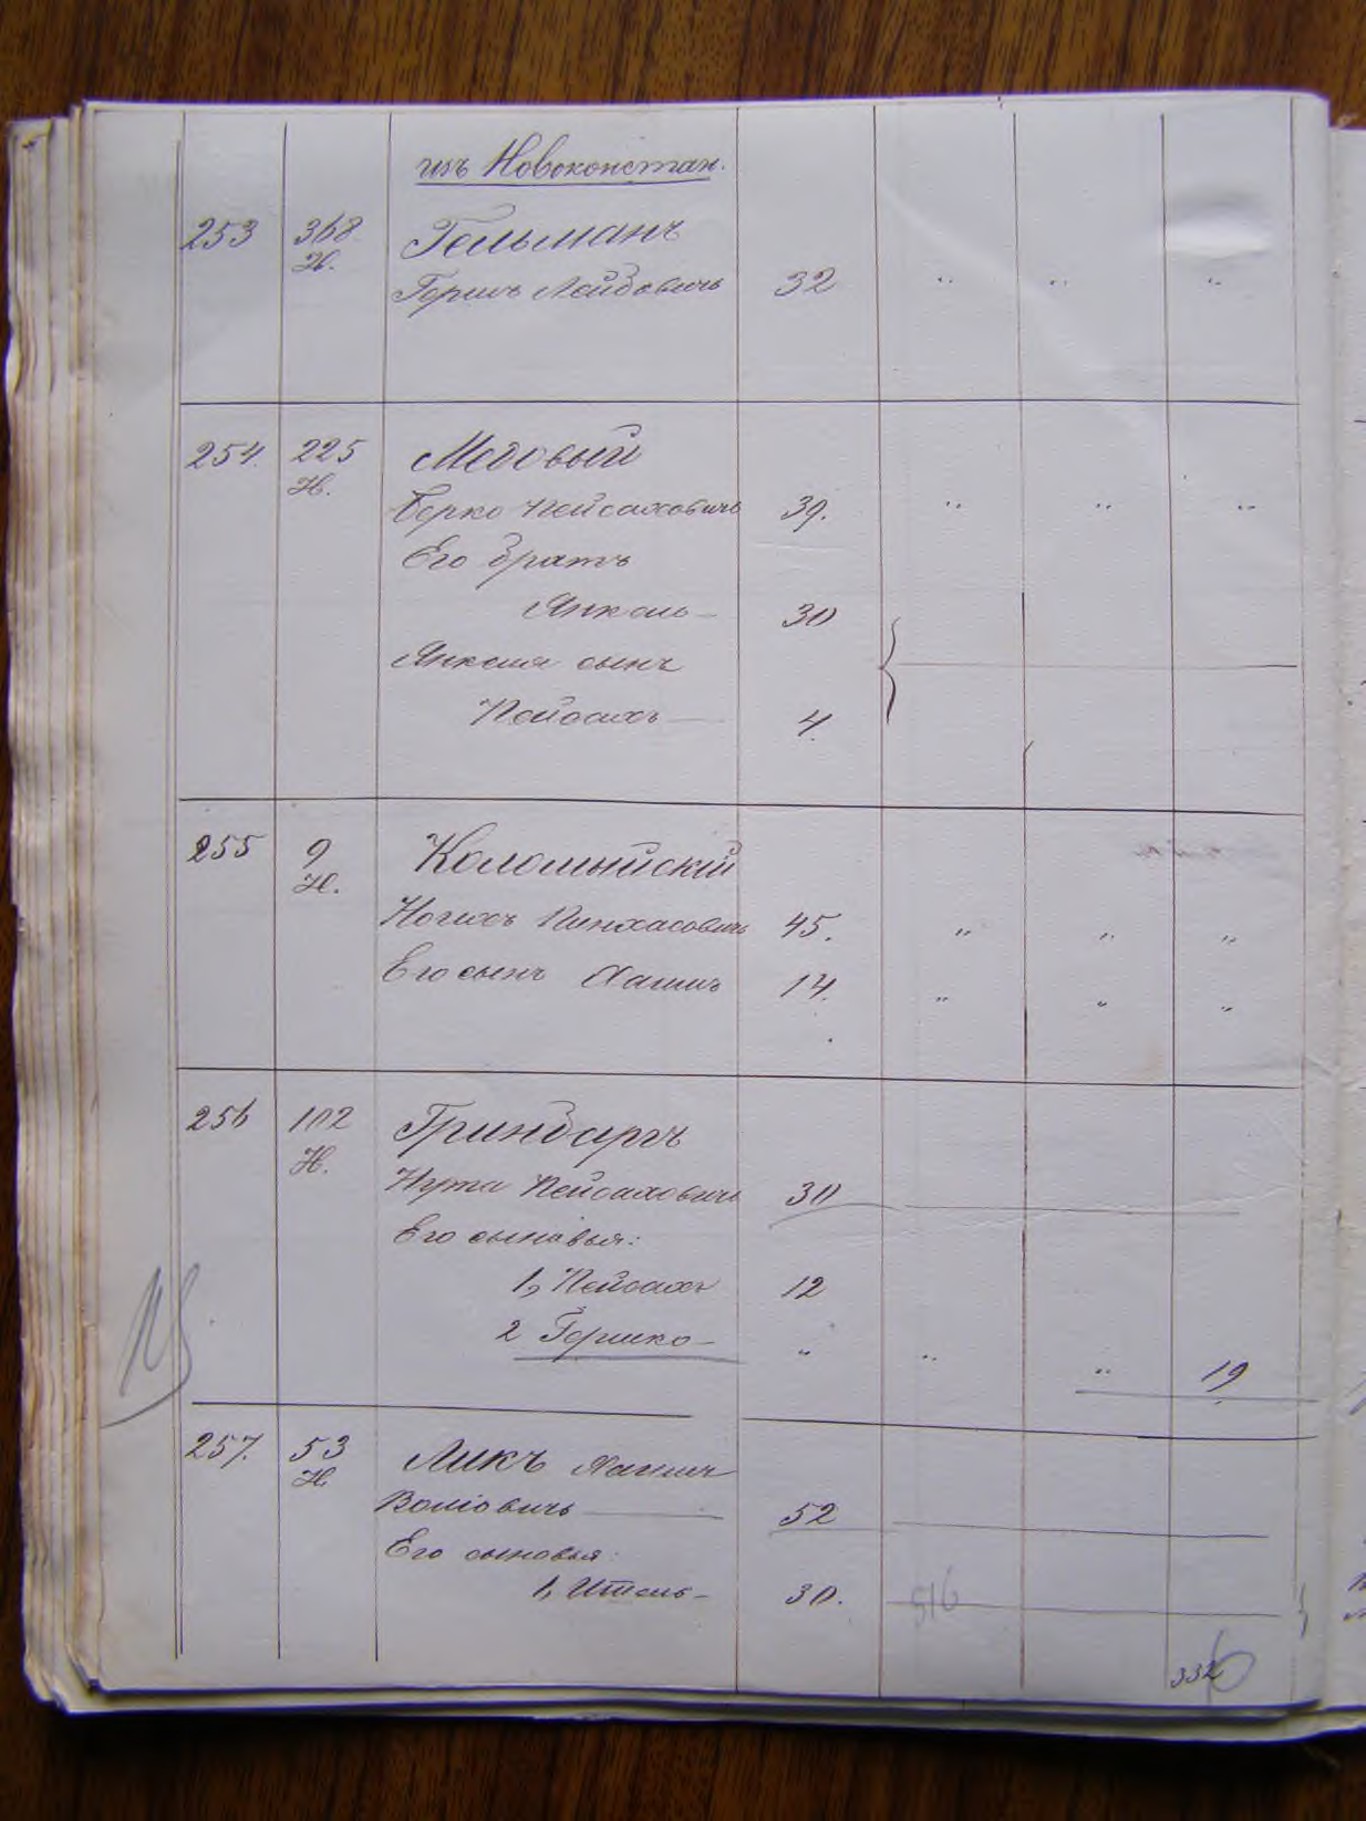 изъ Новоконстан.
253 368 Н. Гельманъ
Гершъ Лейбовичъ 32 " " "
254. 225 Н. Медовый
Берко Пейсаховичъ 39. " " "
Его братъ
Янкель 30
Янкеля сынъ
Пейсахъ 4.
255 9 Н. Коломыйскій
Пинхасовичъ 45. " " "
Его сынъ Хаимъ 14. " " "
256 102 Н. Гринбаргъ
Нута Пейсаховичъ 30
Его сыновья:
1, Пейсахъ 12
2 Гершко " " " 19
257. 53 Н Ликъ Хаимъ
52
Его сыновья:
1, 30.
516
332